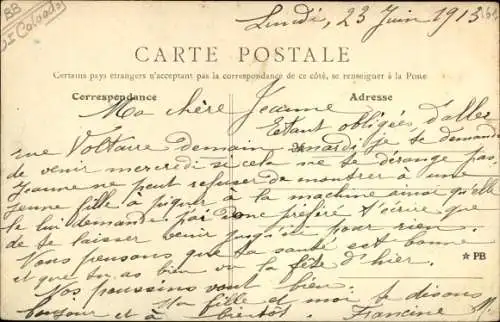 BB
Calvados
Lundi, 23 Juin 1913
CARTE POSTALE
Certains pays étrangers n'acceptant pas la correspondance de ce côté, se renseigner à la Poste
Correspondance
Adresse
Ma chère Jeanne
Etant obligées d'aller
rue Voltaire demain mardi, je te demande
de venir mercredi si cela ne te dérange pas
Jeanne ne peut refuser de montrer à une
jeune fille à piquer à la machine ainsi qu'elle
le lui demande, j'ai donc préféré t'écrire que
de te laisser venir jusqu'ici pour rien.
Nous pensons que ta santé est bonne
et que tu as bien vu la fête d'hier.
★ PB
Nos poussins vont bien.
Ma fille et moi te disons
bonjour et à bientôt. Francine